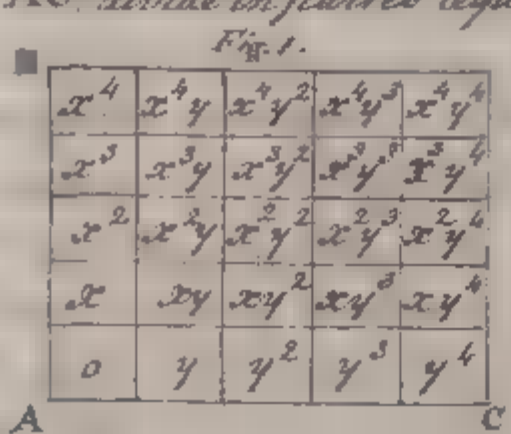 Fig. 1.
x⁴ x⁴y x⁴y² x⁴y³ x⁴y⁴
x³ x³y x³y² x³y³ x³y⁴
x² x²y x²y² x²y³ x²y⁴
x xy xy² xy³ xy⁴
o y y² y³ y⁴
A C